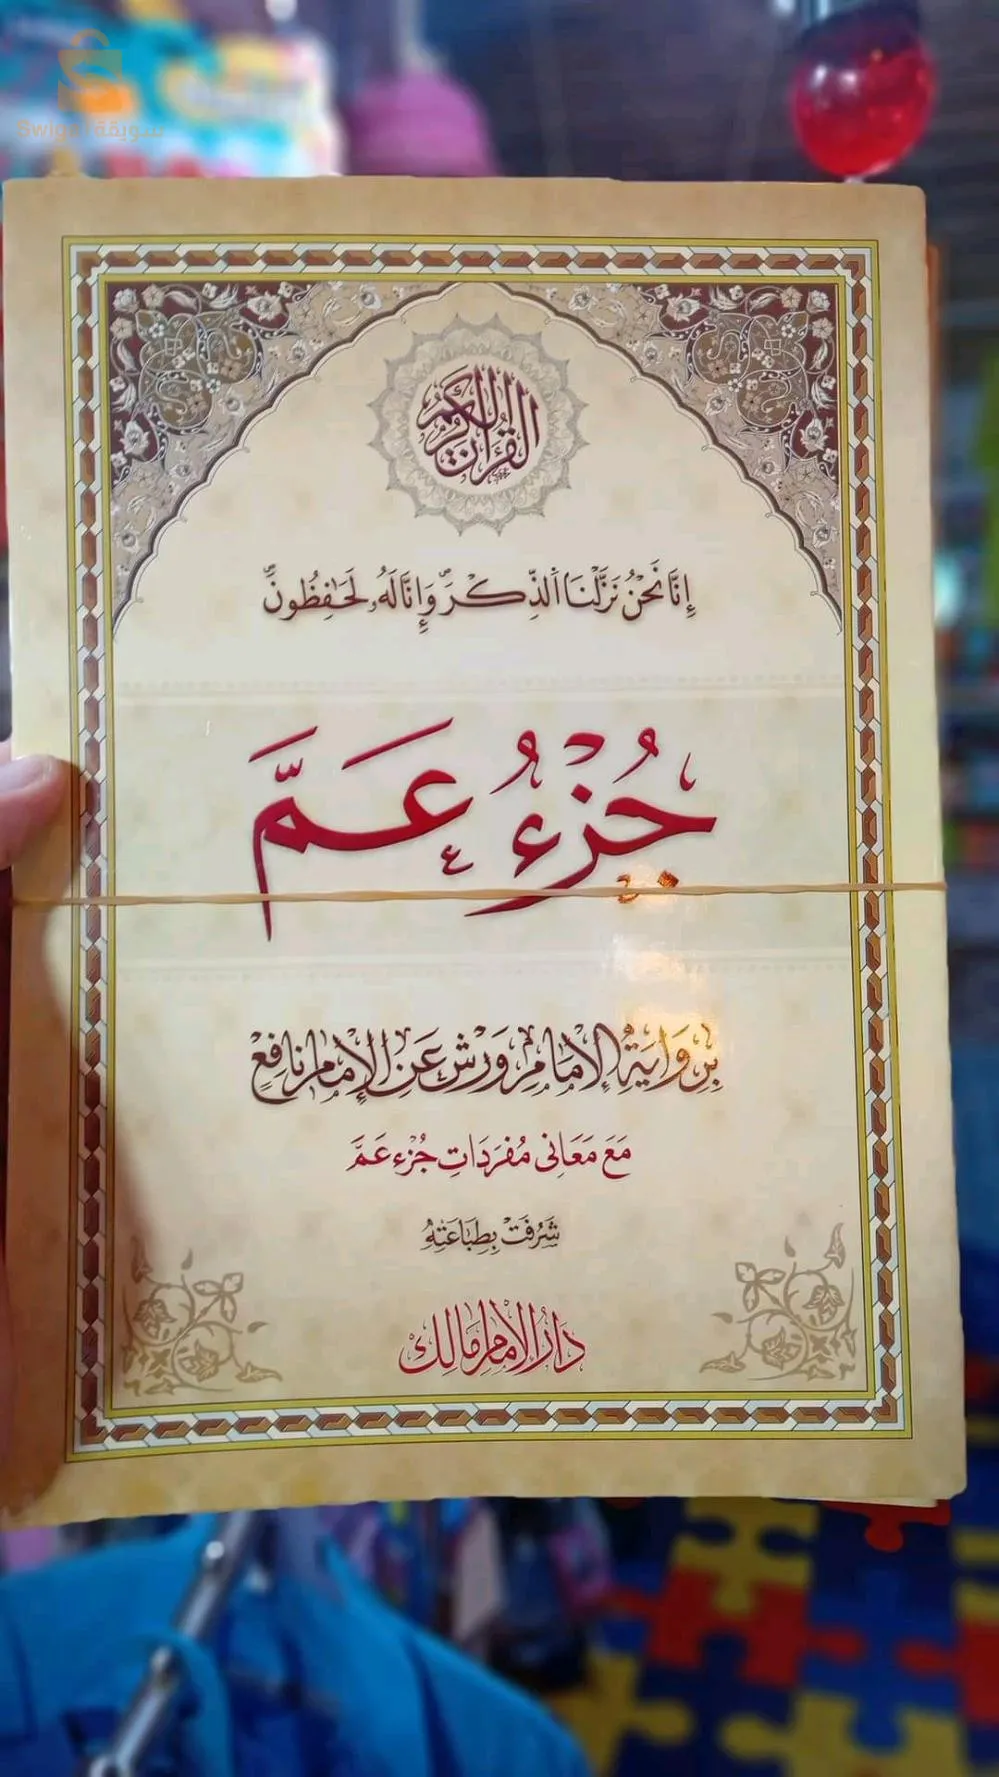 سويقة Swiqa
القرآن الكريم
إِنَّا نَحْنُ نَزَّلْنَا اَلذِّكْرَ وَإِنَّا لَهُۥ لَحَٰفِظُونَ
جُزْءُ عَمَّ
بِرِوَايَةُ الإِمَامِ وَرْش عَنِ الإِمَامِ نَافِعْ
مَعَ مَعَانِى مُفرَدَاتِ جُزْء عَمَّ
شَرُفَتْ بِطِبَاعَتِهِ
دَارُ الإمَامِ مَالِك